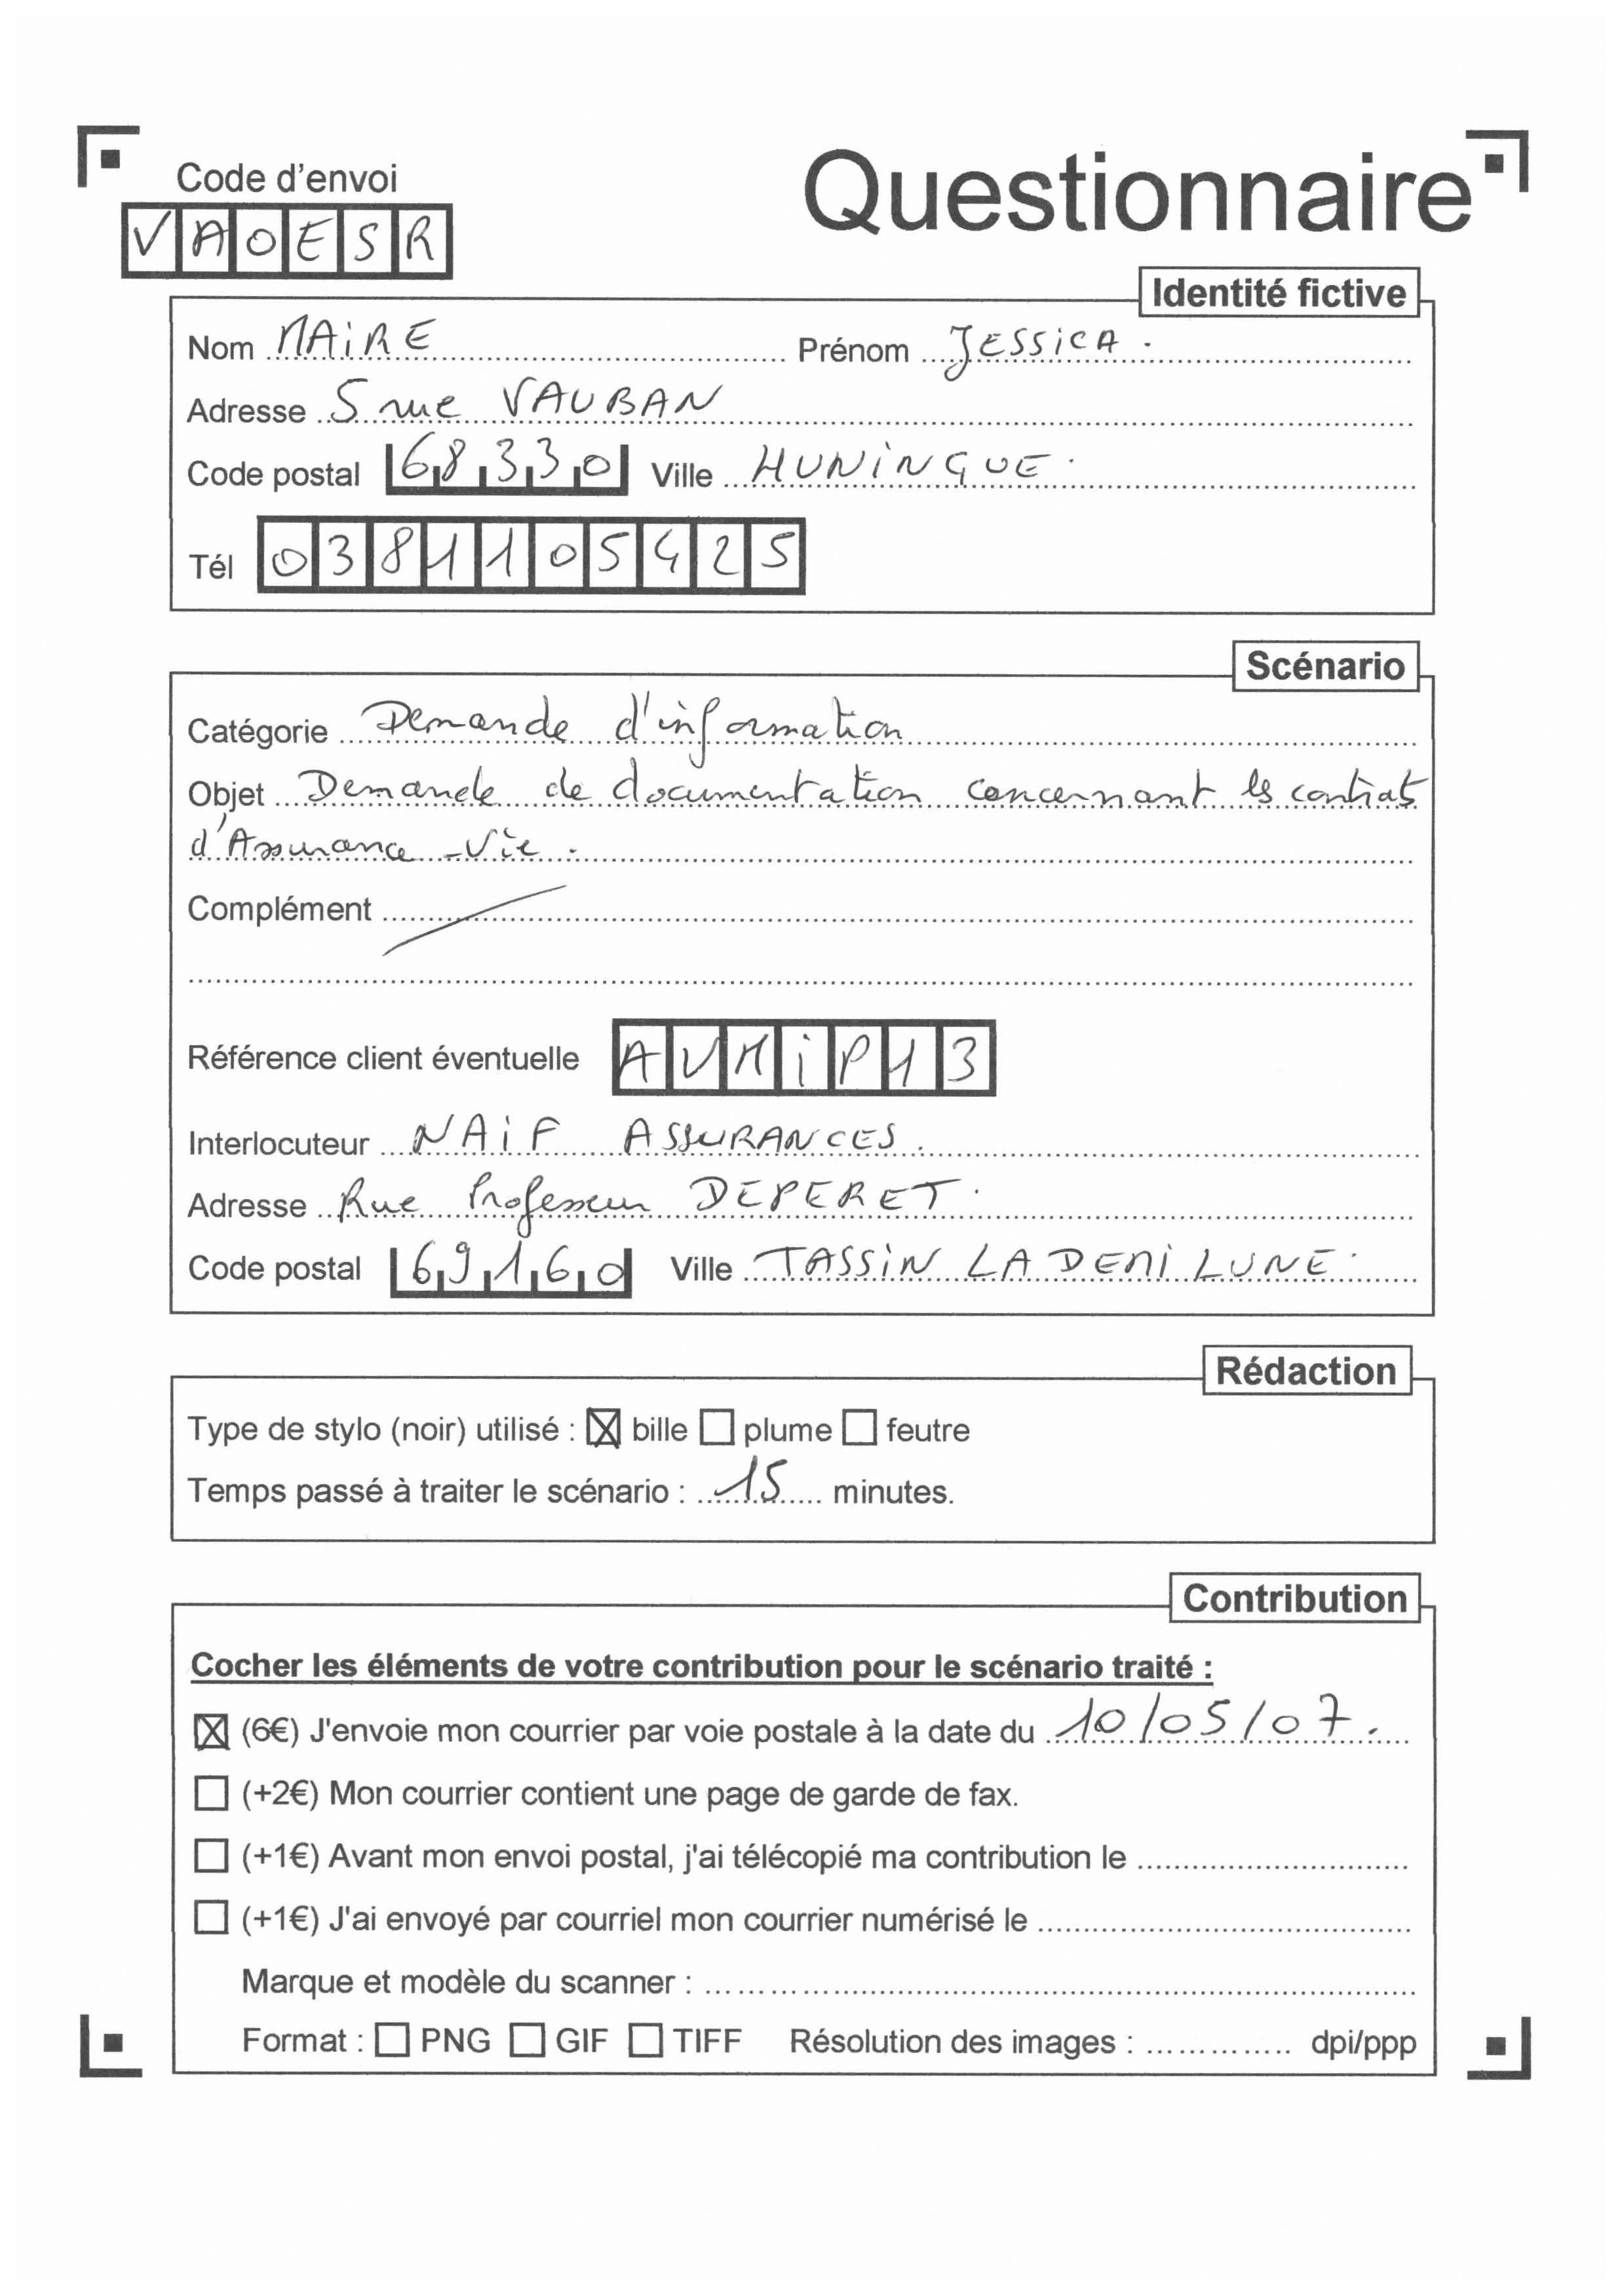 Code d'envoi
Questionnaire
VAOESR
Identité fictive
Nom MAiRE Prénom JESSiCA.
Adresse 5 rue VAUBAN
Code postal 68330 Ville HUNiNGUE.
Tél 0381105425
Scénario
Catégorie Demande d'information
Objet Demande de documentation concernant les contrats
d'Assurance-Vie.
Complément
Référence client éventuelle AVMiP13
Interlocuteur NAiF ASSURANCES.
Adresse Rue Professeur DEPERET.
Code postal 69160 Ville TASSiN LA DEMi LUNE.
Rédaction
Type de stylo (noir) utilisé : ☒ bille ☐ plume ☐ feutre
Temps passé à traiter le scénario : 15 minutes.
Contribution
Cocher les éléments de votre contribution pour le scénario traité :
☒ (6€) J'envoie mon courrier par voie postale à la date du 10/05/07.
☐ (+2€) Mon courrier contient une page de garde de fax.
☐ (+1€) Avant mon envoi postal, j'ai télécopié ma contribution le
☐ (+1€) J'ai envoyé par courriel mon courrier numérisé le
Marque et modèle du scanner :
Format : ☐ PNG ☐ GIF ☐ TIFF Résolution des images : dpi/ppp